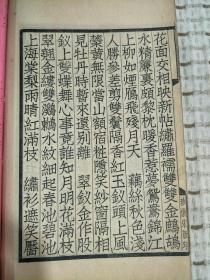 花面交相映新帖繡羅襦雙雙金鷓鴣
水精簾裏頗黎枕暖香惹夢鴛鴦錦江
上柳如煙鴈飛殘月天　藕絲秋色淺
人勝參差剪雙鬢隔香紅玉釵頭上風
蘂黃無限當山額宿粧隱笑紗窗隔相
見牡丹時暫來還別離　翠釵金作股
釵上雙蝶舞心事竟誰知月明花滿枝
翠翹金縷雙鸂鶒水紋細起春池碧池
上海棠梨雨晴紅滿枝　繡衫遮笑靨